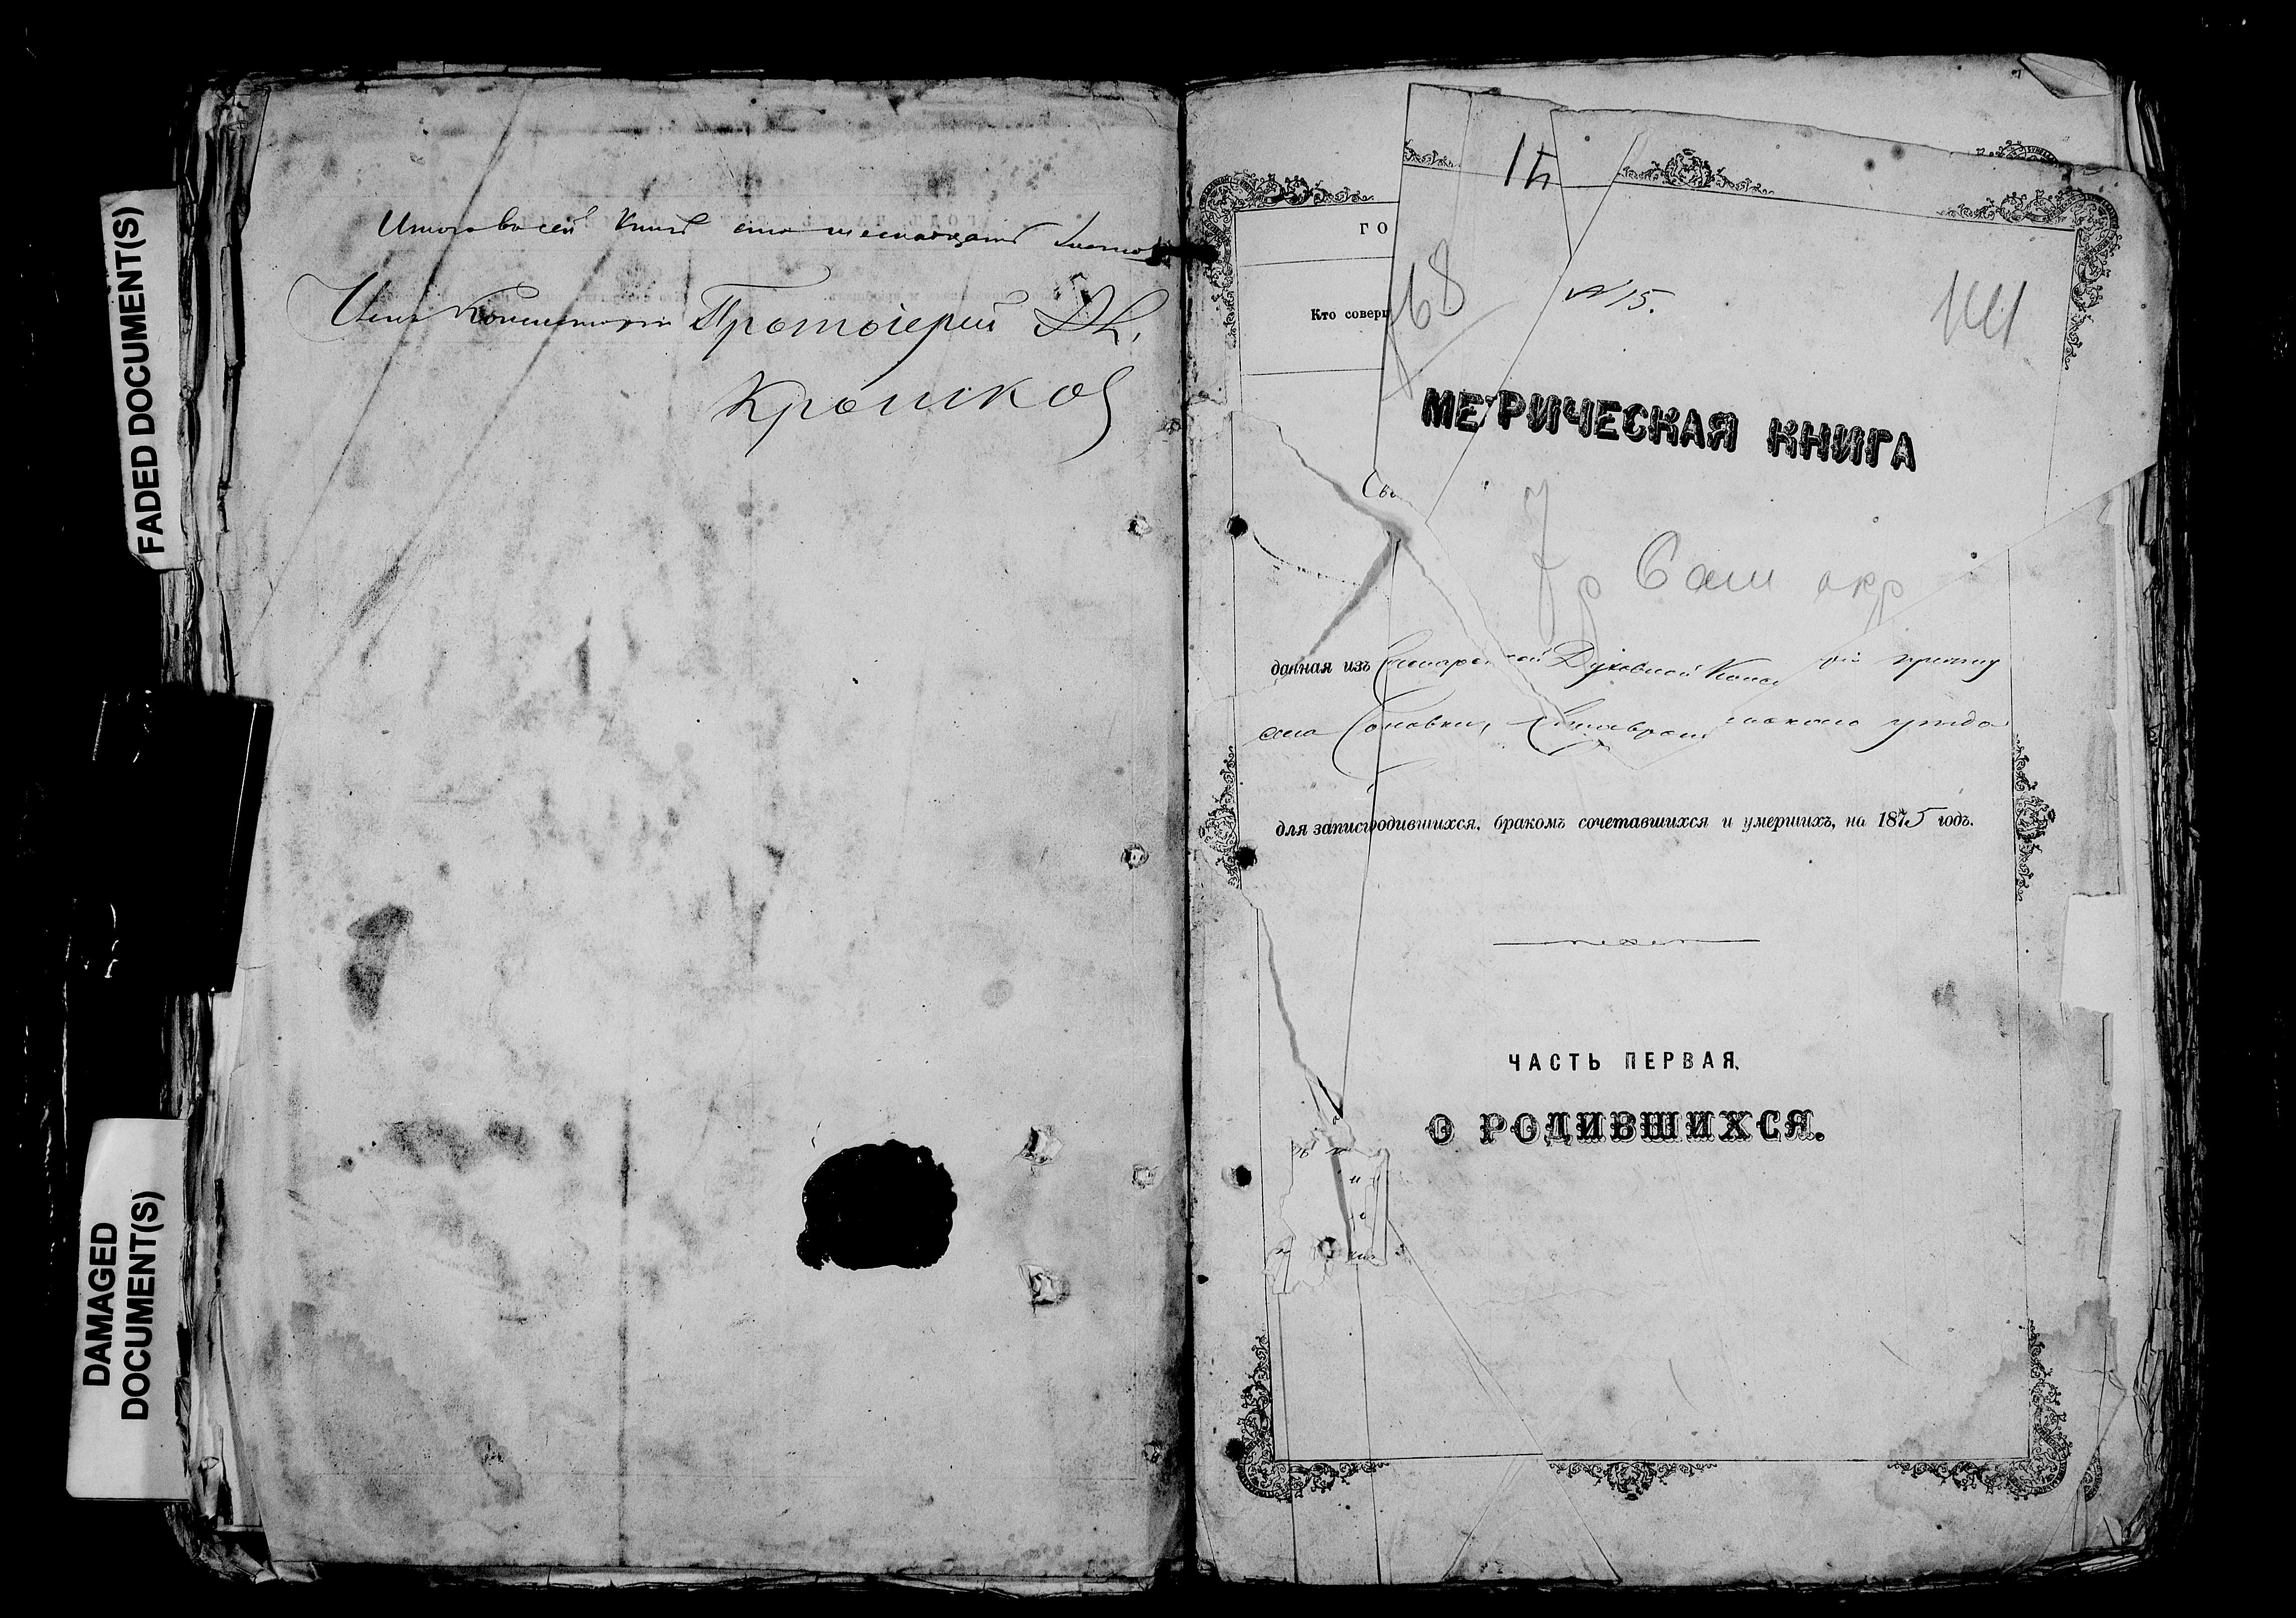 FADED DOCUMENT(S)
DAMAGED
DOCUMENT(S)
Итого въ сей книгѣ сто шестнадцать листовъ
Членъ Консисторіи Протоіерей
Крошков
14
ГО
68
№ 15.
141
Кто соверш
МЕТРИЧЕСКАЯ КНИГА
7 Сам окр
данная изъ Самарской Духовной Конс рiи причту
села Сосновки, Ставропольского уѣзда
для записи родившихся, бракомъ сочетавшихся и умершихъ, на 1875 годъ.
ЧАСТЬ ПЕРВАЯ.
О РОДИВШИХСЯ.